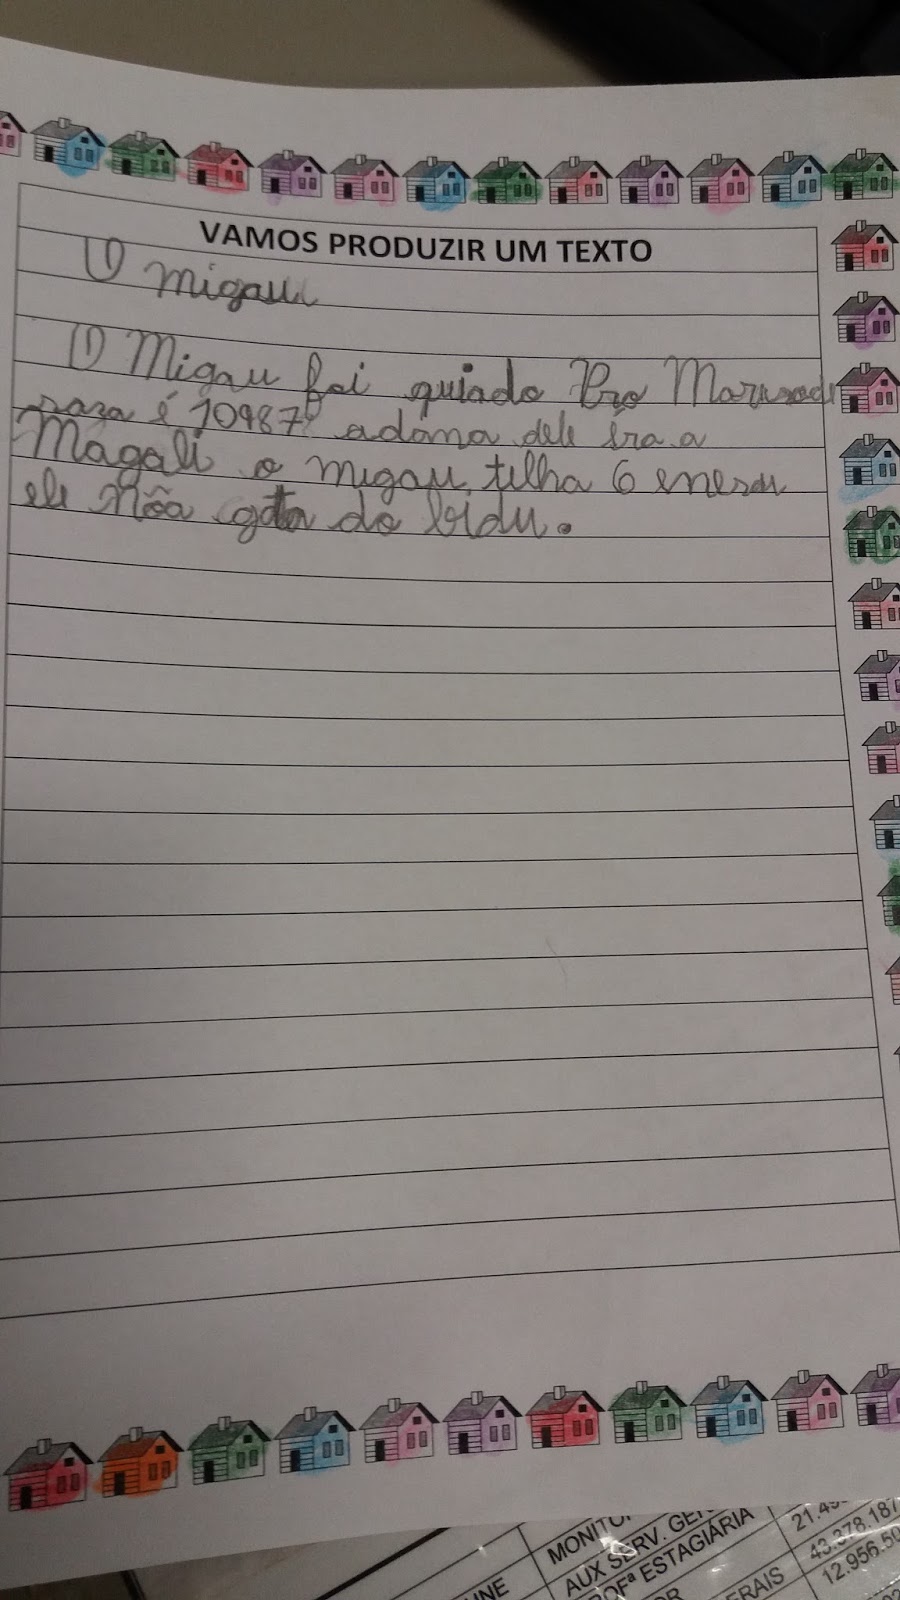 VAMOS PRODUZIR UM TEXTO
O migau
O Migau foi quiado Pro Mari
é 10987 adona dele éra a
Magali o migau tilha 6 enesu
ele Nõa gota do bidu.
MONITOR
AUX SERV. GER
PROFª ESTAGIÁRIA
ERAIS
21.49
43.378.187
12.956.50